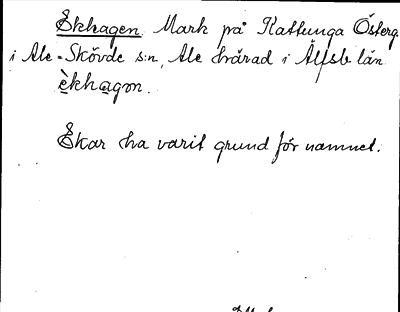 Ekhagen. Mark på Kattunga Österg.
i Ale-Skövde s:n, Ale härad i Älfsb län
èkhagon.
Ekar ha varit grund för namnet.